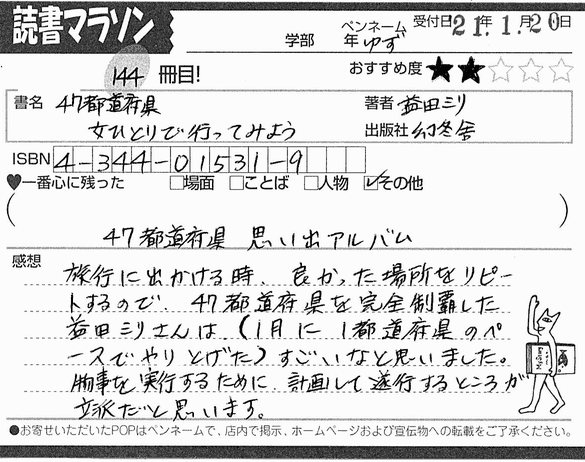 読書マラソン
学部
年
ペンネーム
ゆず
受付日21年1月20日
144 冊目!
おすすめ度★★☆☆☆
書名 47都道府県
女ひとりで行ってみよう
著者 益田ミリ
出版社 幻冬舎
ISBN 4-344-01531-9
♥一番心に残った □場面 □ことば □人物 ☑その他
47都道府県 思い出アルバム
感想
旅行に出かける時、良かった場所をリピー
トするので、47都道府県を完全制覇した
益田ミリさんは、(1月に1都道府県のペ
ースでやりとげた)すごいなと思いました。
物事を実行するために、計画して遂行するところが
立派だと思います。
●お寄せいただいたPOPはペンネームで、店内で掲示、ホームページおよび宣伝物への転載をご了承ください。